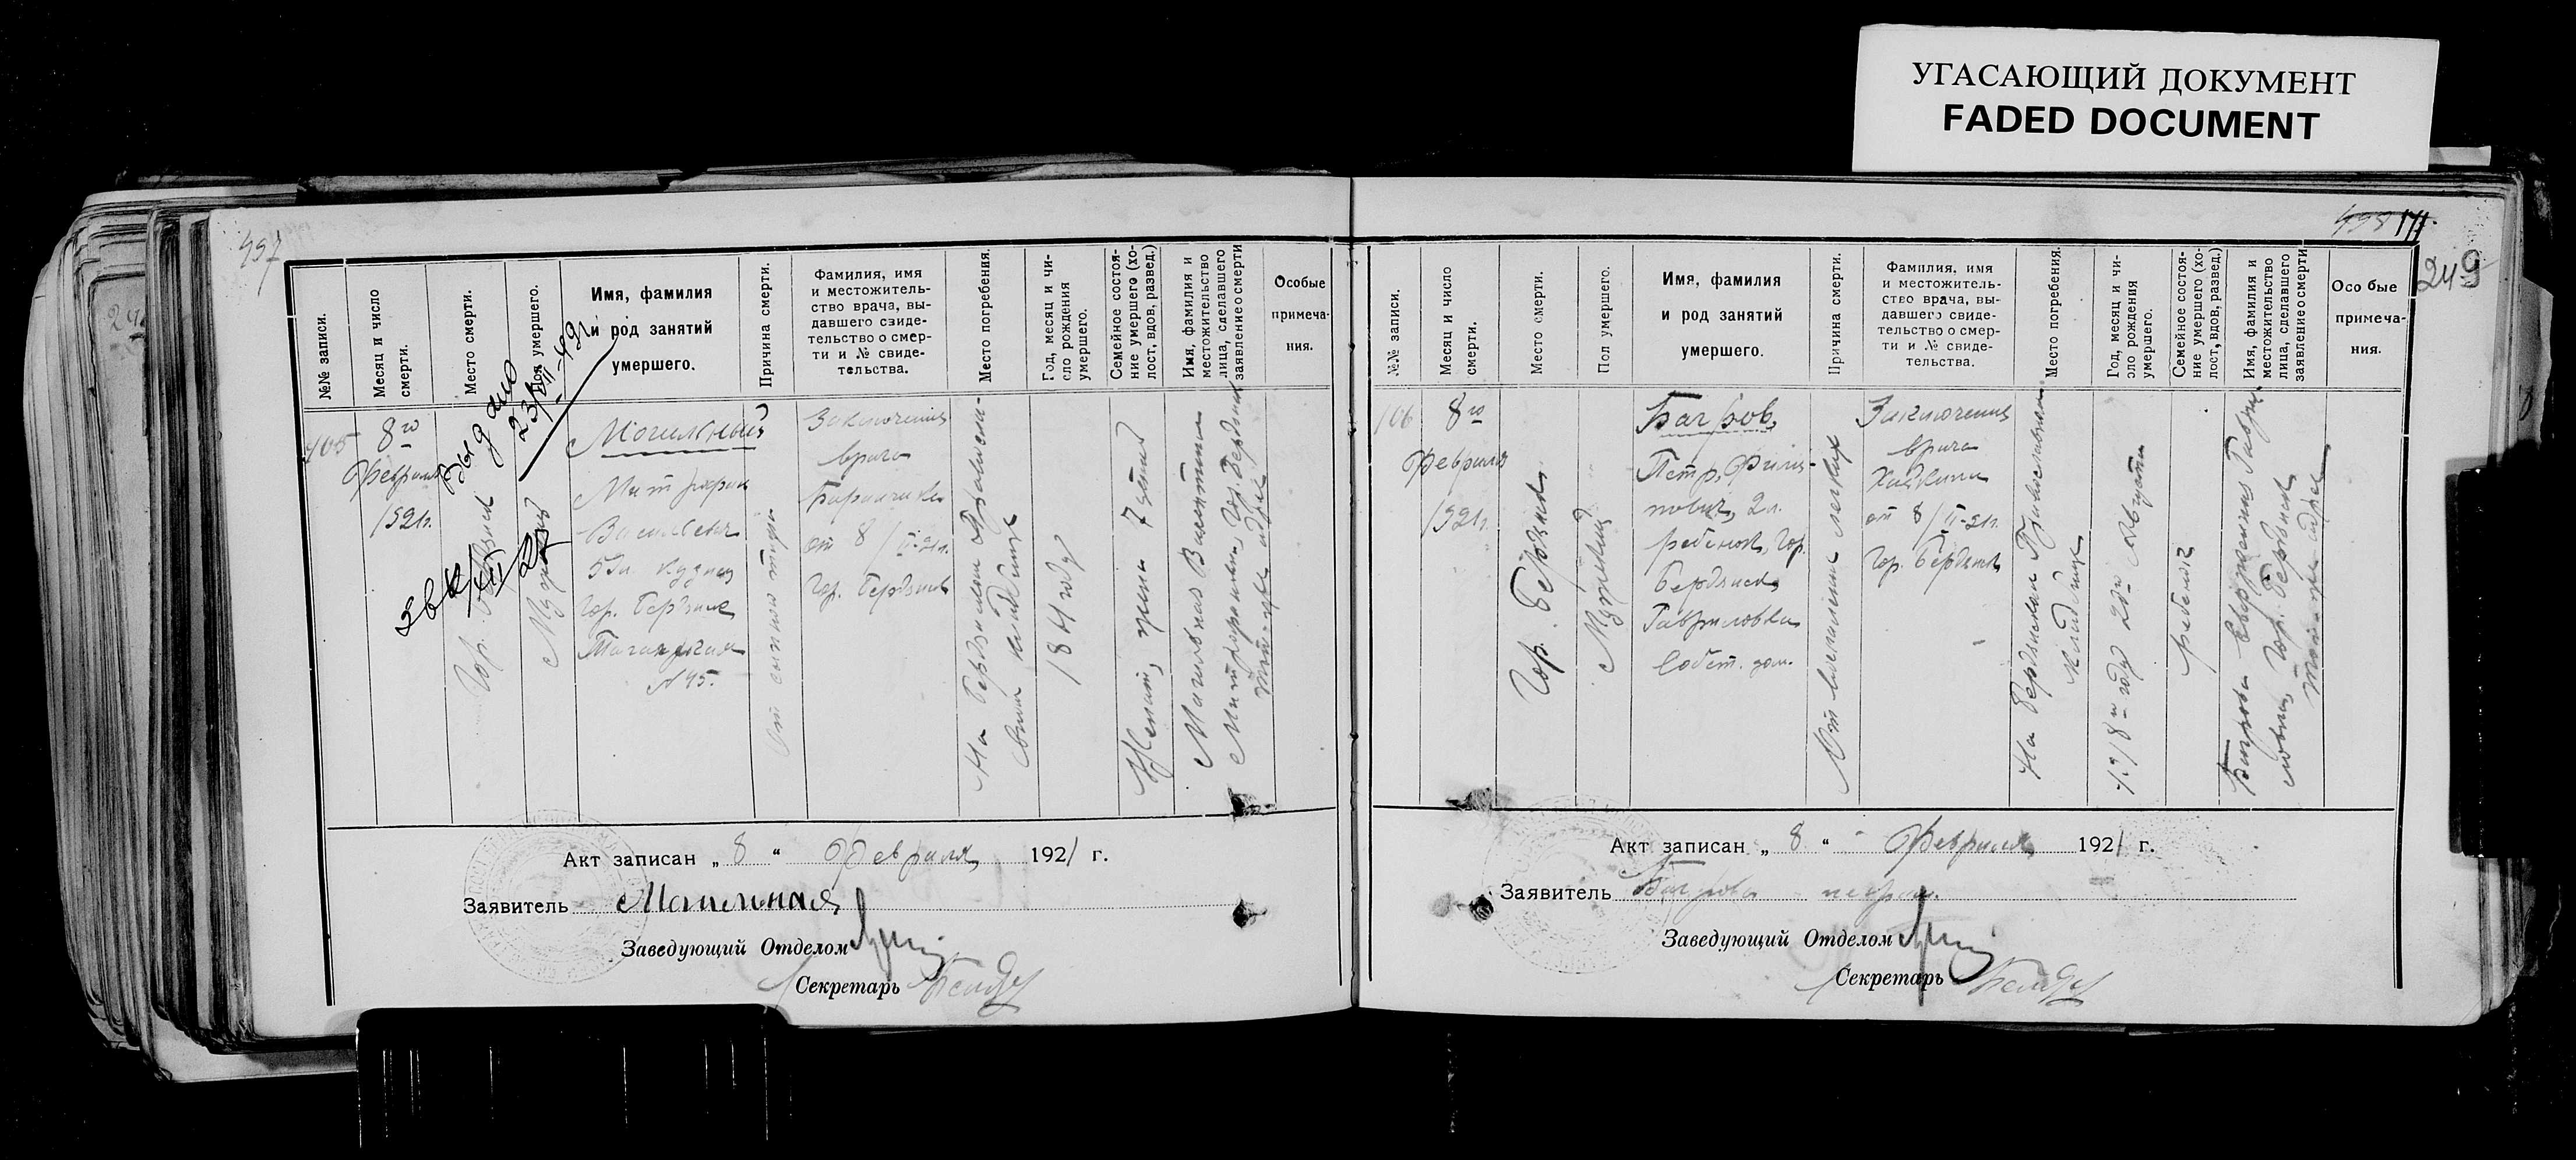 УГАСАЮЩИЙ ДОКУМЕНТ
FADED DOCUMENT
497
№№ записи.
Месяц и число смерти.
Место смерти.
Пол умершего.
Имя, фамилия
и род занятий
умершего.
Причина смерти.
Фамилия, имя
и местожитель-
ство врача, вы-
давшего свиде-
тельство о смер-
ти и № свиде-
тельства.
Место погребения.
Год, месяц и чи-
сло рождения
умершего.
Семейное состоя-
ние умершего (хо-
лост, вдов, развед.)
Имя, фамилия и
местожительство
лица, сделавшего
заявление о смерти
Особые
примеча-
ния.
105
8го
Февраля
1921г.
Гор. Бердянск
Мужской
Могильный
Митрофан
Васильевич
53л. кузнец
Гор. Бердянск
№ 45.
От сыпного тифа
Заключение
врача
от 8/II-21г.
Гор. Бердянск
На Бердянском Православном
кладбище
Женат, жена 7 детей
Могильная Валентина
Митрофановна, Гор. Бердянск
тот-же адрес
Акт записан „ 8 “ Февраля 1921 г.
Заявитель Могильная
Заведующий Отделом
Секретарь
171.
249
№№ записи.
Месяц и число
смерти.
Место смерти.
Пол умершего.
Имя, фамилия
и род занятий
умершего.
Причина смерти.
Фамилия, имя
и местожитель-
ство врача, вы-
давшего свиде-
тельство о смер-
ти и № свиде-
тельства.
Место погребения.
Год, месяц и чи-
сло рождения
умершего.
Семейное состоя-
ние умершего (хо-
лост, вдов, развед.)
Имя, фамилия и
местожительство
лица, сделавшего
заявление о смерти
Осо бые
примеча-
ния.
106
8го
Февраля
1921г.
Гор. Бердянск
Мужской
Багров,
Петр, Филип-
пович, 2л.
ребенок, Гор.
Бердянск,
Гавриловка
Собст. дом.
От воспаления легких
Заключение
врача
от 8/II-21г.
Гор. Бердянск
На Бердянском Православном
кладбище
1918го году 20го Августа
ребенок
Багрова Евфросиния Гаври-
ловна, Гор. Бердянск,
тот-же адрес
Акт записан „ 8 “ Февраля 1921 г.
Заявитель Багрова неграм.
Заведующий Отделом
Секретарь